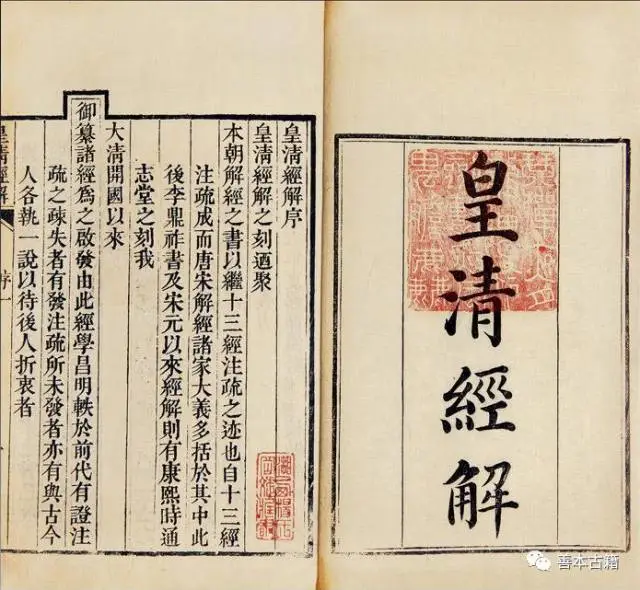 皇清經解
皇清經解序
皇清經解之刻迺聚
本朝解經之書以繼十三經注疏之迹也自十三經
注疏成而唐宋解經諸家大義多括於其中此
後李鼎祚書及宋元以來經解則有康熙時通
志堂之刻我
大清開國以來
御纂諸經爲之啟發由此經學昌明軼於前代有證注
疏之疎失者有發注疏所未發者亦有與古今
人各執一說以待後人折衷者
皇清經解
序一
善本古籍